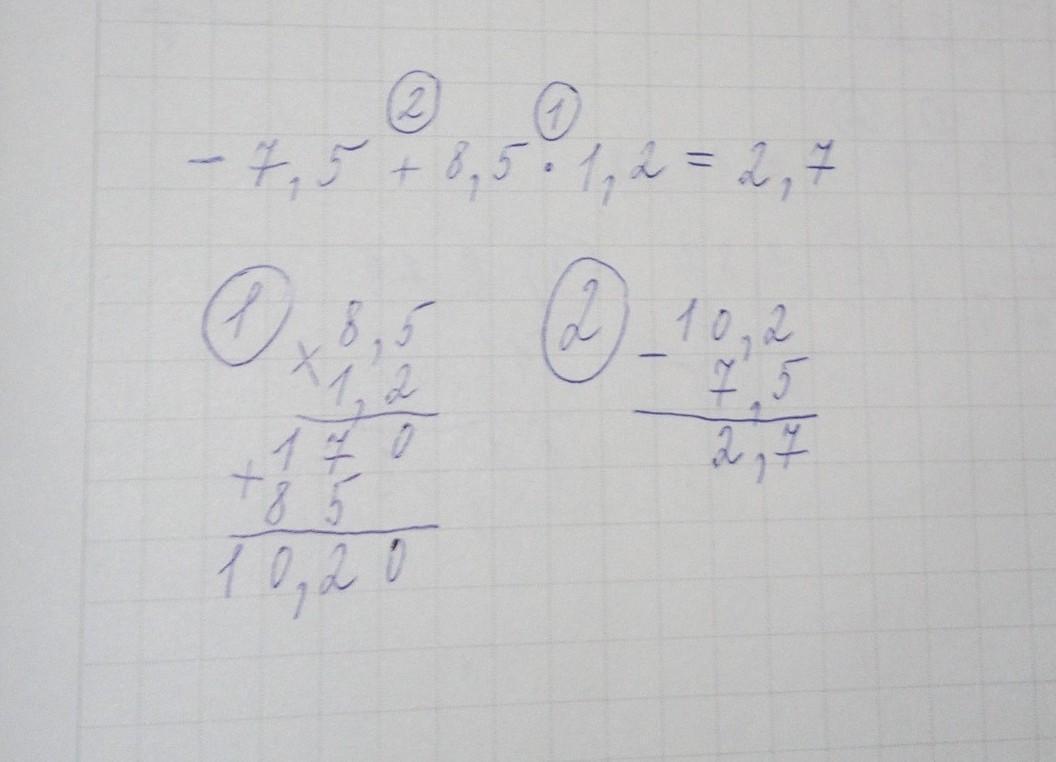 ② ①
− 7,5 + 8,5 · 1,2 = 2,7
①
× 8,5
1,2
+ 170
85
10,20
②
− 10,2
7,5
2,7